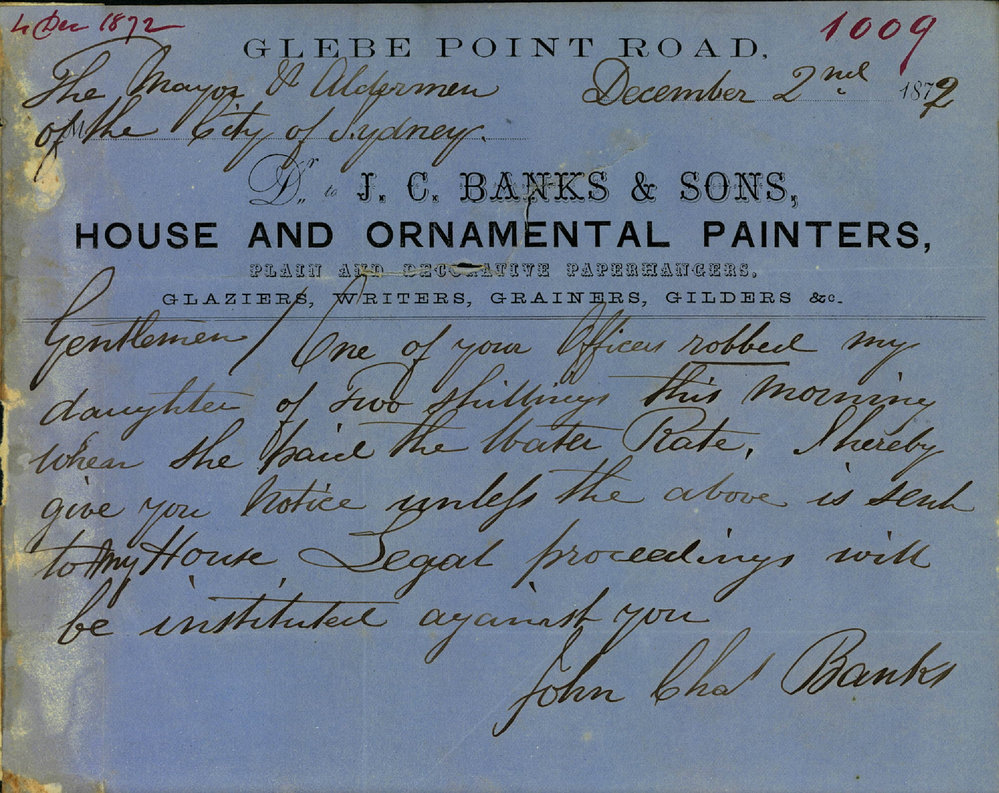 4 Dec 1872
1009
GLEBE POINT ROAD,
The Mayor & Aldermen December 2nd 1872
M of the City of Sydney.
Dr. to J. C. BANKS & SONS,
HOUSE AND ORNAMENTAL PAINTERS,
PLAIN AND DECORATIVE PAPERHANGERS,
GLAZIERS, WRITERS, GRAINERS, GILDERS &c.
Gentlemen / One of your Officers robbed my
daughter of Two shillings this morning
when she paid the Water Rate, I hereby
give you Notice unless the above is sent
to my House, Legal proceedings will
be instituted against you
John Chas Banks